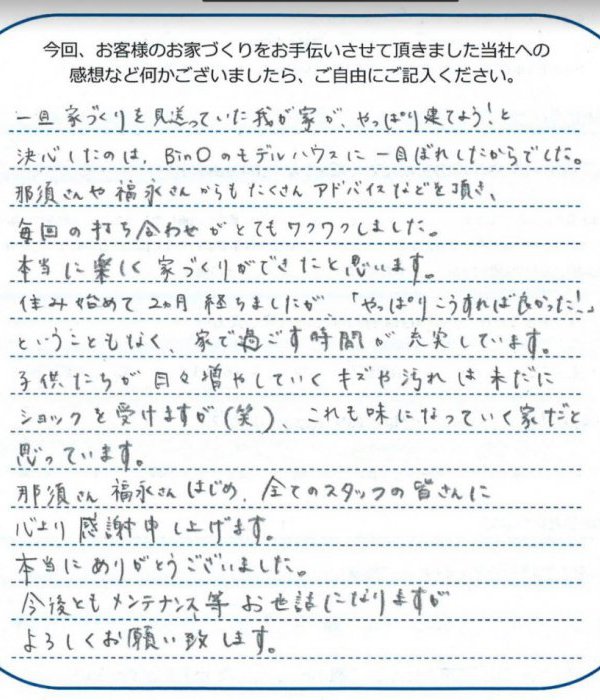 今回、お客様のお家づくりをお手伝いさせて頂きました当社への
感想など何かございましたら、ご自由にご記入ください。
一旦 家づくりを見送っていた我が家が、やっぱり建てよう!と
決心したのは、BinOのモデルハウスに一目ぼれしたからでした。
那須さんや福永さんからもたくさんアドバイスなどを頂き、
毎回の打ち合わせがとてもワクワクしました。
本当に楽しく家づくりができたと思います。
住み始めて2ヵ月経ちましたが、「やっぱりこうすれば良かった!」
ということもなく、家で過ごす時間が充実しています。
子供たちが日々増やしていくキズや汚れは未だに
ショックを受けますが(笑)、これも味になっていく家だと
思っています。
那須さん福永さんはじめ、全てのスタッフの皆さんに
心より感謝申し上げます。
本当にありがとうございました。
今後ともメンテナンス等お世話になりますが
よろしくお願い致します。